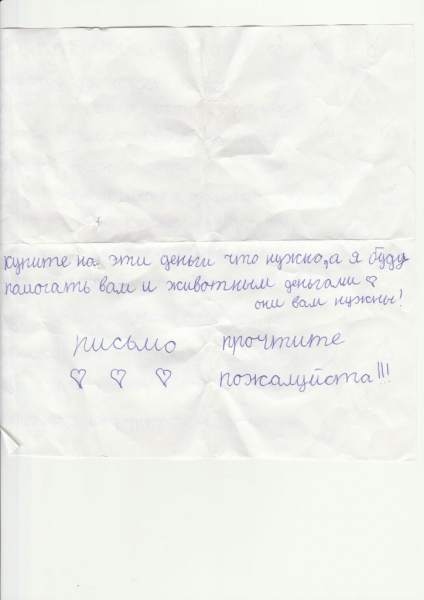 купите на эти деньги что нужно, а я буду
памогать вам и животным деньгами ♡
они вам нужны!
письмо прочтите
♡ ♡ ♡ пожалуйста!!!